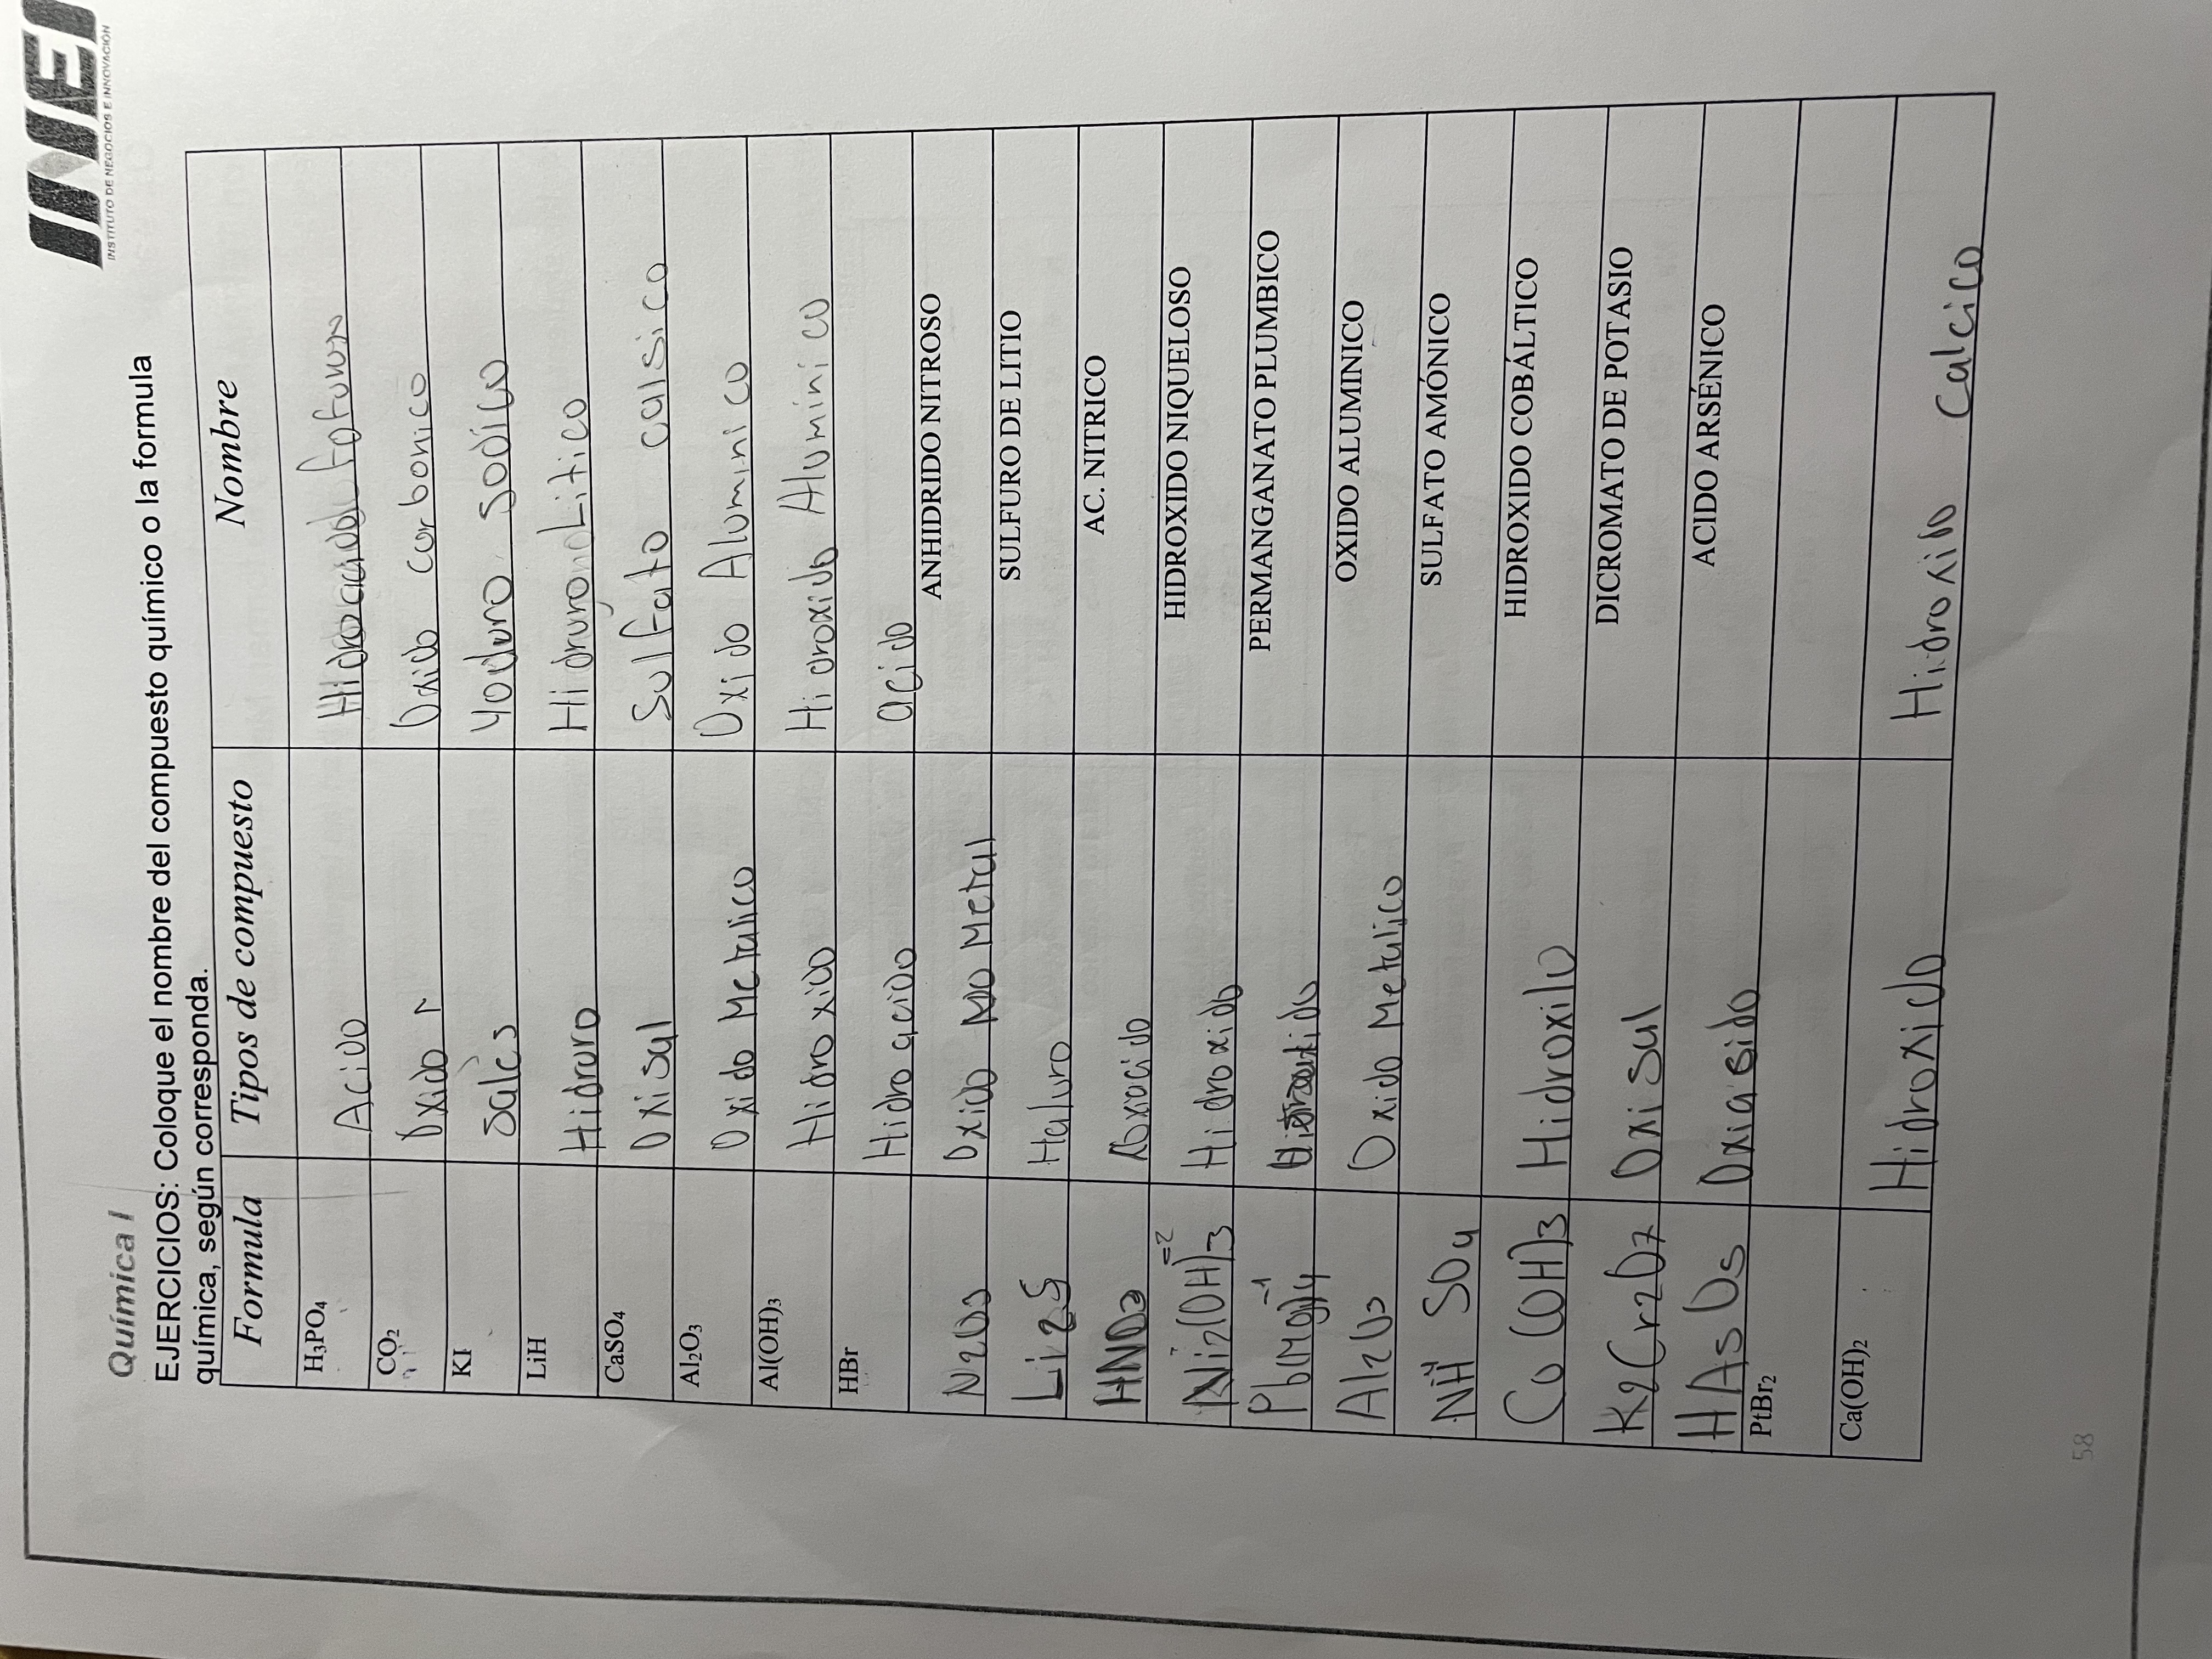 INEI
INSTITUTO DE NEGOCIOS E INNOVACIÓN
Química I
EJERCICIOS: Coloque el nombre del compuesto químico o la formula
química, según corresponda.
Formula Tipos de compuesto Nombre
H₃PO₄ Acido
CO₂ Oxido Oxido carbonico
KI Sales Yoduro sodico
LiH Hidruro Hidruro Litico
CaSO₄ Oxisal Sulfato calsico
Al₂O₃ Oxido Metalico Oxido Aluminico
Al(OH)₃ Hidroxido Hidroxido Aluminico
HBr Hidro acido acido
N₂O₃ Oxido No Metal ANHIDRIDO NITROSO
Li₂S Haluro SULFURO DE LITIO
HNO₃ Oxiacido AC. NITRICO
Ni₂(OH)₃ Hidroxido HIDROXIDO NIQUELOSO
PERMANGANATO PLUMBICO
Al₂O₃ Oxido Metalico OXIDO ALUMINICO
NH SO₄ SULFATO AMÓNICO
Co(OH)₃ Hidroxilo HIDROXIDO COBÁLTICO
K₂Cr₂O₇ Oxisal DICROMATO DE POTASIO
HAsO₅ Oxiasido ACIDO ARSÉNICO
PtBr₂
Ca(OH)₂ Hidroxido Hidroxido Calcico
58